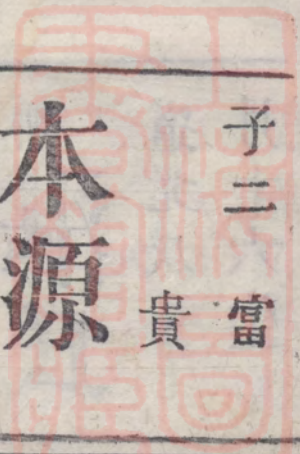 子二 富
貴
本源